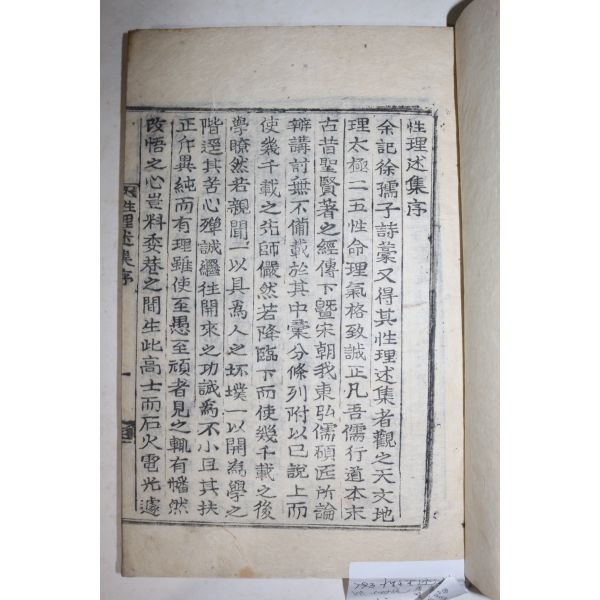 性理述集序
余記徐孺子詩蒙又得其性理述集者觀之天文地
理太極二五性命理氣格致誠正凡吾儒行道本末
古昔聖賢著之經傳下曁宋朝我東弘儒碩匠所論
辨講討無不備載於其中彙分條列附以已說上而
使幾千載之先師儼然若降臨下而使幾千載之後
學瞭然若親聞一以具爲人之坏墣一以開爲學之
階逕其苦心殫誠繼往開來之功誠爲不小且其扶
正斥異純而有理雖使至愚至頑者見之輒有幡然
改悟之心豈料委巷之間生此高士而石火電光遽
性理述集序
一